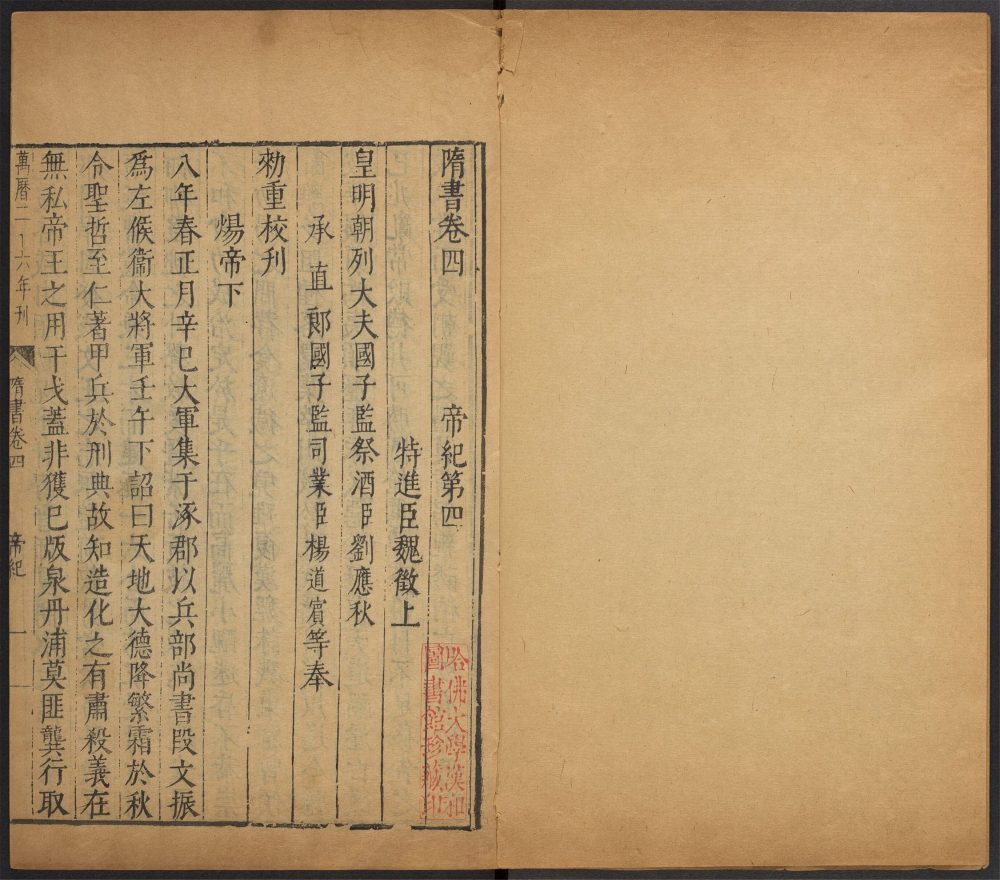 隋書卷四 帝紀第四
特進臣魏徵上
皇明朝列大夫國子監祭酒臣劉應秋
承直郎國子監司業臣楊道賓等奉
勑重校刊
煬帝下
八年春正月辛巳大軍集于涿郡以兵部尚書段文振
爲左候衞大將軍壬午下詔曰天地大德降繁霜於秋
令聖哲至仁著甲兵於刑典故知造化之有肅殺義在
無私帝王之用干戈蓋非獲已版泉丹浦莫匪龔行取
萬曆二十六年刊 隋書卷四 帝紀 一
哈佛大學漢和
圖書館珍藏印